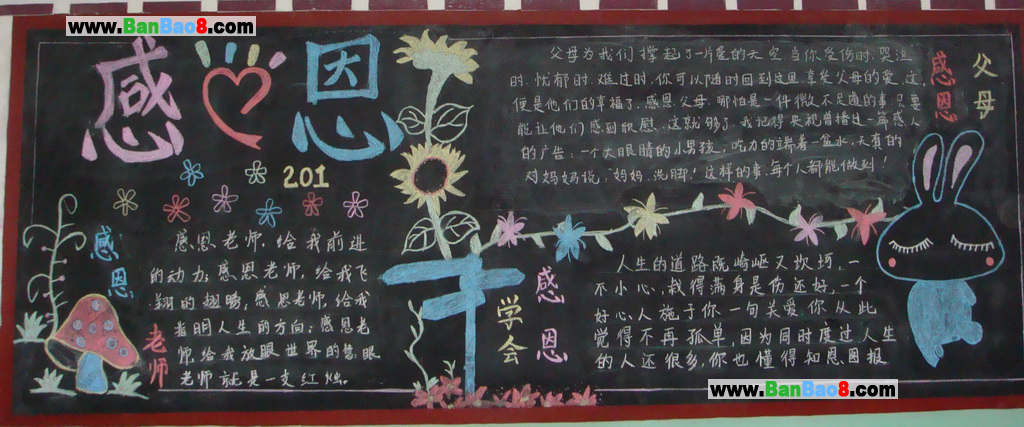 www.BanBao8.com
感恩
201
感恩
老师
感恩老师,给我前进
的动力;感恩老师,给我飞
翔的翅膀;感恩老师,给我
指明人生的方向;感恩老
师,给我放眼世界的慧眼
老师就是一支红烛。
父母为我们撑起了一片爱的天空,当你受伤时.哭泣
时.忧郁时.难过时.你可以随时回到这里.享受父母的爱,这
便是他们的幸福了.感恩父母.哪怕是一件微不足道的事.只要
能让他们感到欣慰.这就够了.我记得央视曾播过一篇感人
的广告:一个大眼睛的小男孩,吃力的端着一盆水,天真的
对妈妈说,"妈妈.洗脚!"这样的事,每个人都能做到!
感恩
父母
学会
感恩
人生的道路既崎岖又坎坷,一
不小心,栽得满身是伤.还好,一个
好心人施于你一句关爱.你从此
觉得不再孤单,因为同时度过人生
的人还很多,你也懂得知恩图报
www.BanBao8.com